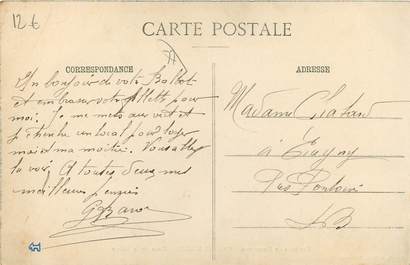 12 €
CARTE POSTALE
CORRESPONDANCE
ADRESSE
Un bonjour de votre
et embrasser votre fillette pour
moi. Je me mets au vert et
je cherche un local pour loger
moi et ma moitié. Vous allez
la voir. A toutes deux mes
meilleures pensées
Madame
à
Par Pontoise